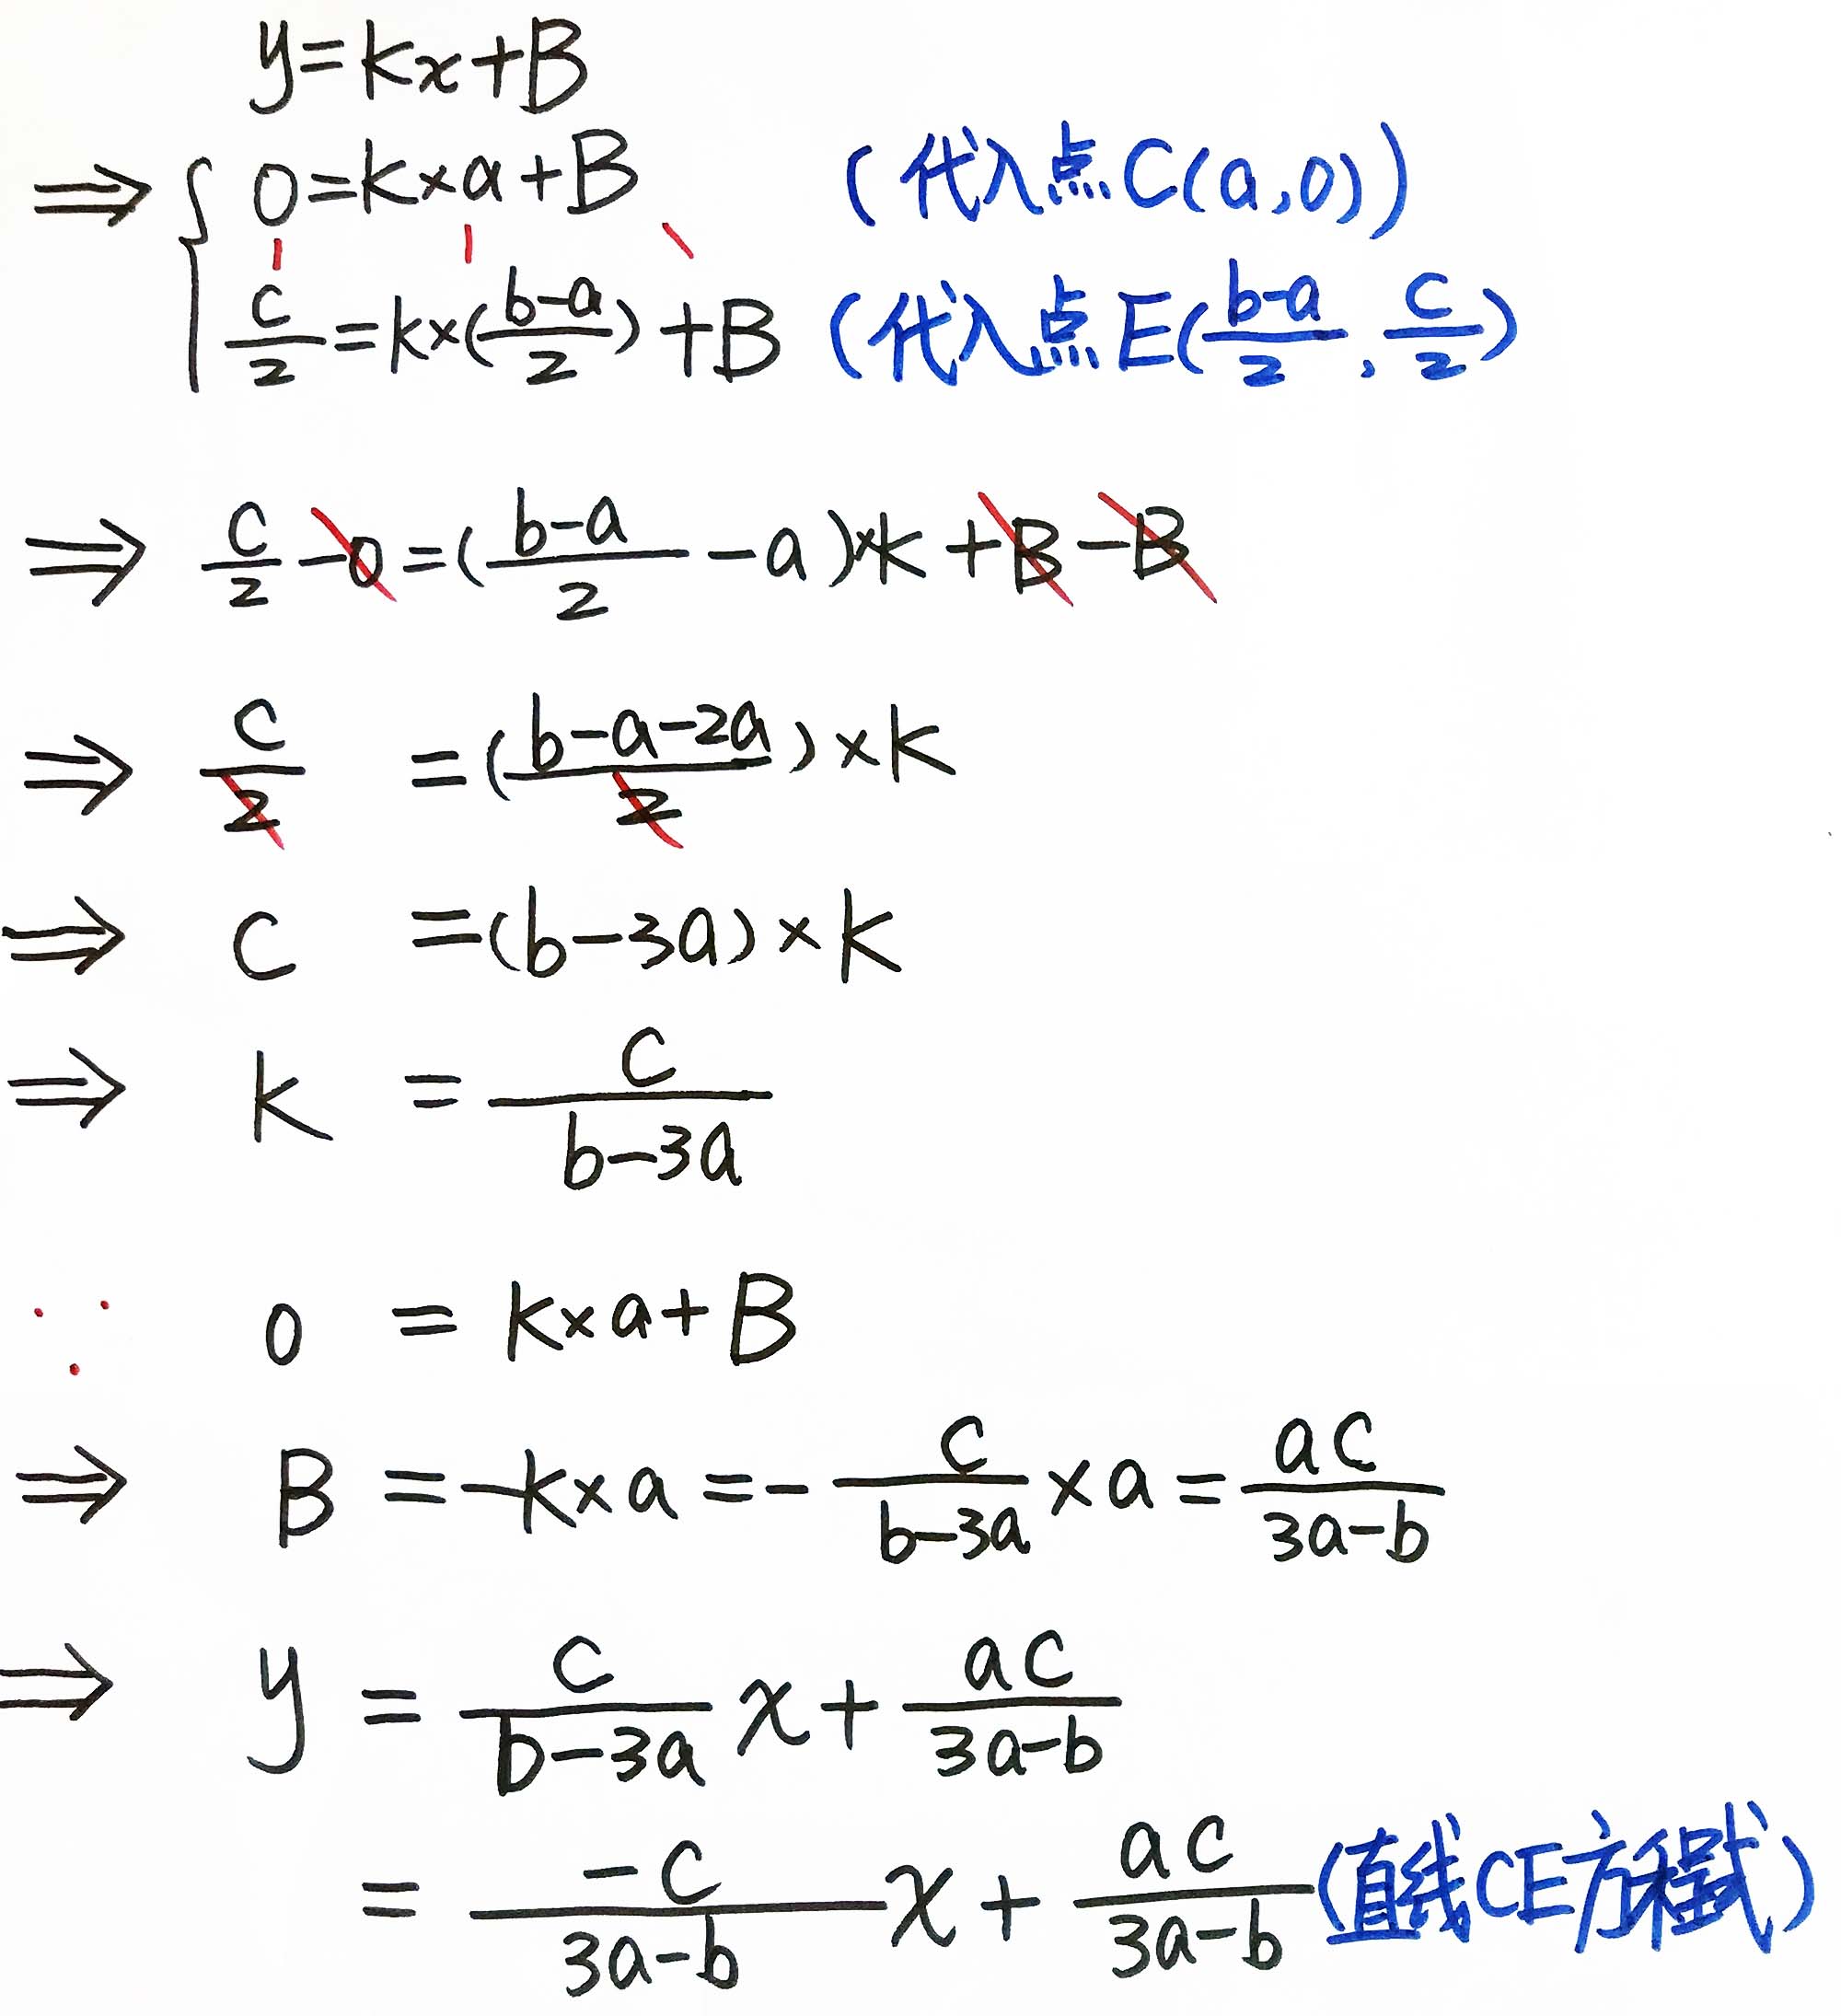 y=kx+B
⇒ { 0=k×a+B (代入点C(a,0))
c/2=k×(b-a/2)+B (代入点E(b-a/2,c/2)
⇒ c/2-0=(b-a/2-a)×k+B-B
⇒ c/2=(b-a-2a/2)×k
⇒ c=(b-3a)×k
⇒ k=c/b-3a
∵ 0=k×a+B
⇒ B=-k×a=-c/b-3a×a=ac/3a-b
⇒ y=c/b-3a x+ac/3a-b
=-c/3a-b x+ac/3a-b (直线CE方程式)